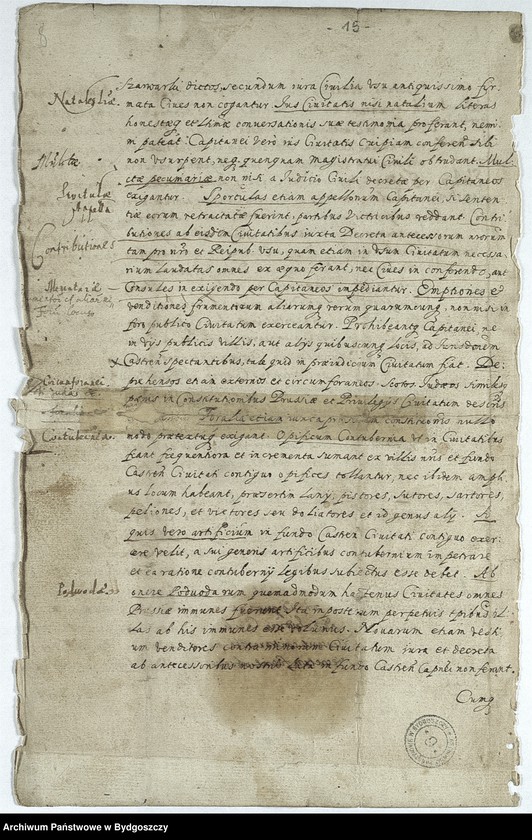 - 15 -
8
Szarwarki dictos, secundum iura Civilia usu antiquissimo fir-
Nataliciae
mata Cives non cogantur. Ius Civitatis nisi natalium literas
honestaeq et conversationis suae testimonia proferant, nemi-
ni pateat. Capitanei vero ius Civitatis cuipiam conferendi sibi
Mulctae
non usurpent, neq quenquam magistratui Civili obtrudant. Mul-
ctae pecuniariae non nisi a Iudicio Civili decretae per Capitaneos
exigantur. Sporculas etiam appellationum Capitanei, si senten-
tiae eorum retractatae fuerint, partibus victricibus reddant. Contri-
butiones ab eisdem Civitatibus iuxta Decreta antecessorum nrorum
Contributiones
tam pro nro et Reipub. usu, quam etiam in usum Civitatum necessa-
rium laudatas omnes ex aequo ferant, nec Cives in conferendo, aut
Consules in exigendo per Capitaneos impediantur. Emptiones et
venditiones frumentorum aliarumq rerum quarumcunq, non nisi in
foro publico Civitatum exerceantur. Prohibeantq Capitanei, ne
in vijs publicis villis, aut alijs quibuscunq locis, ad
Castren spectantibus, tale quid in praeiudicium Civitatum fiat. De-
Circumforanei
prehensos etiam externos et circumforaneos Scotos Iudaeos
paenis in Constitutionibus Prussiae et Privilegijs Civitatum descriptis
Foralia etiam constitutionis nullo
Contubernia
modo praetextu exigant. Opificum Contubernia ut in Civitatibus
fiant frequentiora et incrementa sumant ex villis nris et fundo
Castren Civitati contiguo opifices tollantur, nec ibidem ampli-
us locum habeant, praesertim Lanij, pistores, sutores, sartores,
peliones, et victores seu doliatores et id genus alij. Si
quis vero artificium in fundo Castren Civitati contiguo exer-
cere velit, a sui generis artificibus contubernium impetrare
et ea ratione contubernij legibus subiectus esse debet. Ab
Podwodae
onere Podwodarum quemadmodum hactenus Civitates omnes
Prussiae immunes fuerunt Ita imposterum perpetuis tpibus il-
las ab his immunes esse volumus. Novarum etiam vesti-
um venditores contra Civitatum iura et decreta
ab antecessoribus nostris lata in fundo Castren Capnei non ferant.
Cumq
Archiwum Państwowe w Bydgoszczy